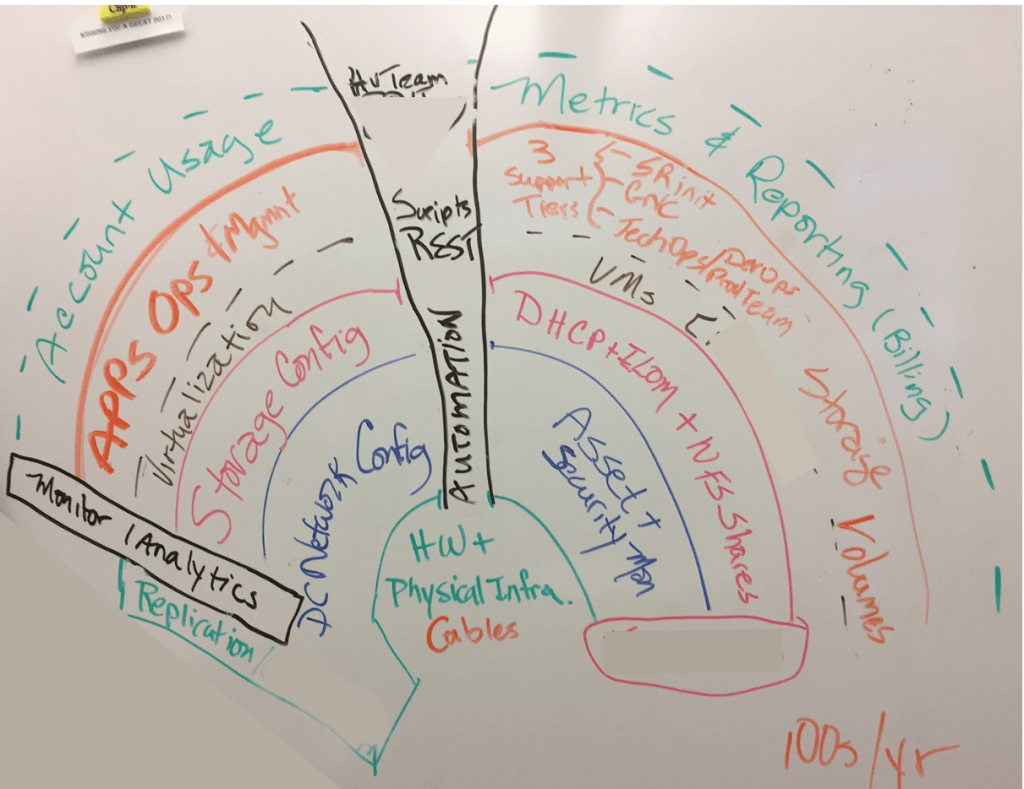 WISHING YOU A GREAT 2017!
Account Usage
Metrics & Reporting (Billing)
HW Team
Scripts
REST
AUTOMATION
APPS Ops & Mgmnt
3
Support
Tiers
- SR init
- GNC
- TechOps/DevOps
/Prod Team
Virtualization
VMs
Storage Config
DHCP + ILOM + NFS Shares
Storage Volumes
DC Network Config
Asset +
Security Mon
HW +
Physical Infra.
Cables
Monitor / Analytics
Replication/
100s/yr